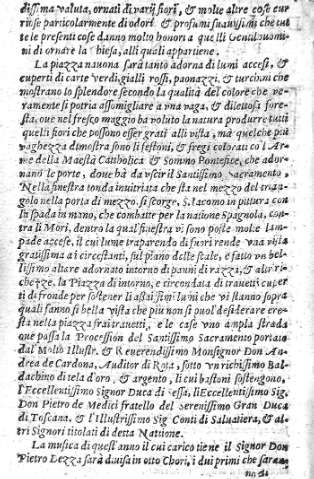 dissima valuta, ornati di varij fiori, & molte altre cose cu-
riose particolarmente di odori & profumi suavissimi che tut
te le presenti cose danno molto honor a quelli Gentilhuomi-
ni di ornare la chiesa, alli quali appartiene.
La piazza nauona sarà tanto adorna di lumi accesi, &
cuperti di carte verdi, gialli rossi, paonazzi, & turchini che
mostrano lo splendore secondo la qualità del colore che ve-
ramente si potria assomigliare a vna vaga, & dilettosa fore-
sta, oue nel fresco maggio ha voluto la natura produrre tutti
quelli fiori che possono esser grati alli vista, mà quelche più
vaghezza dimostra sono li festoni, & fregi colorati co l'Ar-
me della Maestà Catholica & Sommo Pontefice, che ador-
nano le porte, doue bà da vscir il Santissimo Sacramento,
Nella finestra tonda inuitriata che sta nel mezzo del
golo nella porta di mezzo, si scorge, S. Iacomo in pittura con
la spada in mano, che combatte per la natione Spagnola, con-
tra li Mori, dentro la qual finestra vi sono poste molte lam-
pade accese, il cui lume traparendo di fuori rende vna vista
gratissima a i circostanti, sul piano delle scale, è fatto vn bel-
lissimo altare adornato intorno di panni di razza, & altr' ric-
chezze. la Piazza di intorno, e circondata di trauetti cuper
ti di fronde per sostener li assaissimi lumi che vi stanno sopra
quali fanno si bella vista che più non si puol desiderare cre-
sta nella piazza frai trauetti, e le case vno ampla strada
que passa la Procession del Santissimo Sacramento portato
dal Molto Illustr. & Reuerendissimo Monsignor Don An-
drea de Cardona, Auditor di Rota, sotto vn richissimo Bal-
dachino di tela d'oro, & argento, li cui bastoni sostengono,
l'Eccellentissimo Signor Duca di Sessa, li Eccellentissimo Sig.
Don Pietro de Medici fratello del Serenissimo Gran Duca
di Toscana, & l'Illustrissimo Sig Conti di Saluatiera, & al-
tri Signori titolati di detta Nattione.
La musica di quest' anno il cui carico tiene il Signor Don
Pietro Lezza sarà diuisa in otto Chori, i dui primi che saran-
no di